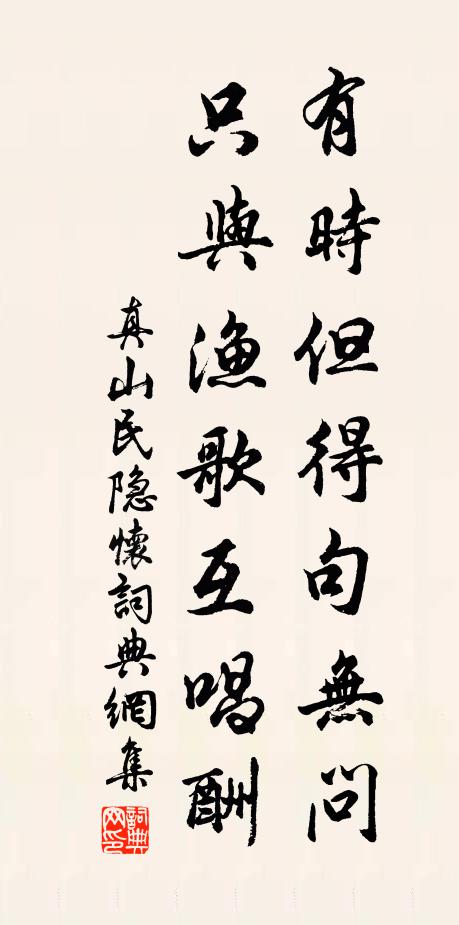 有時但得句無問
只與漁歌互唱酬
真山民隐懷詞典網集
詞典